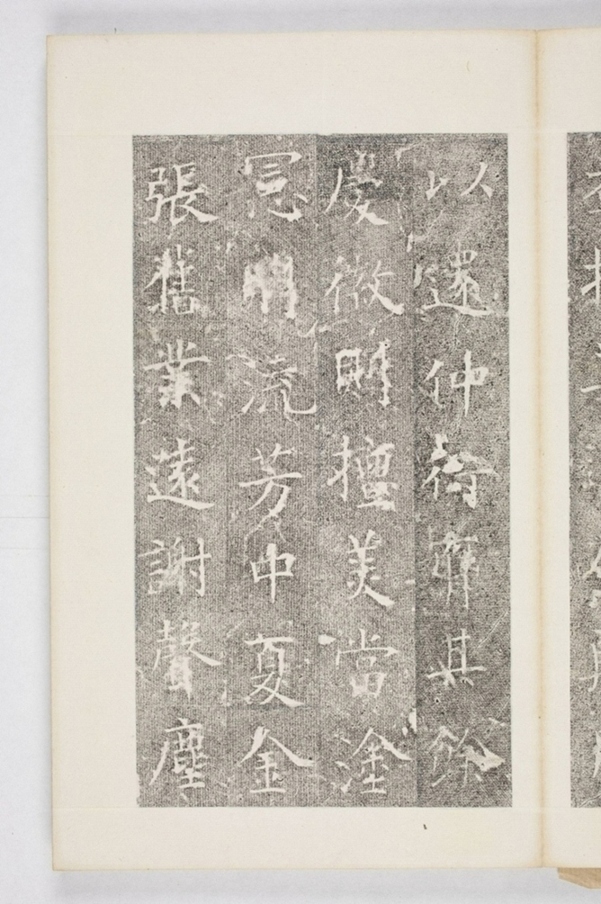 以還仲齊其餘
慶徽則擅美當塗
明流芳中夏金
張舊業遠謝聲塵